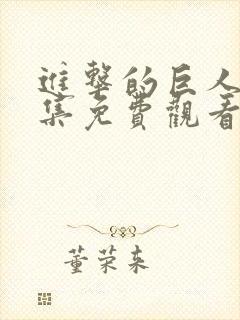 進擊的巨人
集免費觀看
董荣来